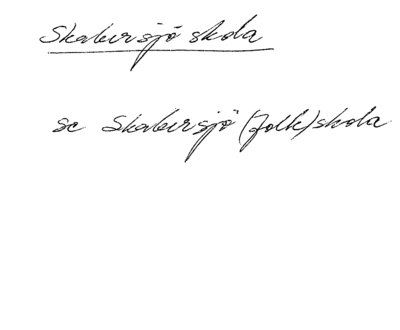 Skabersjö skola
se Skabersjö (folk)skola